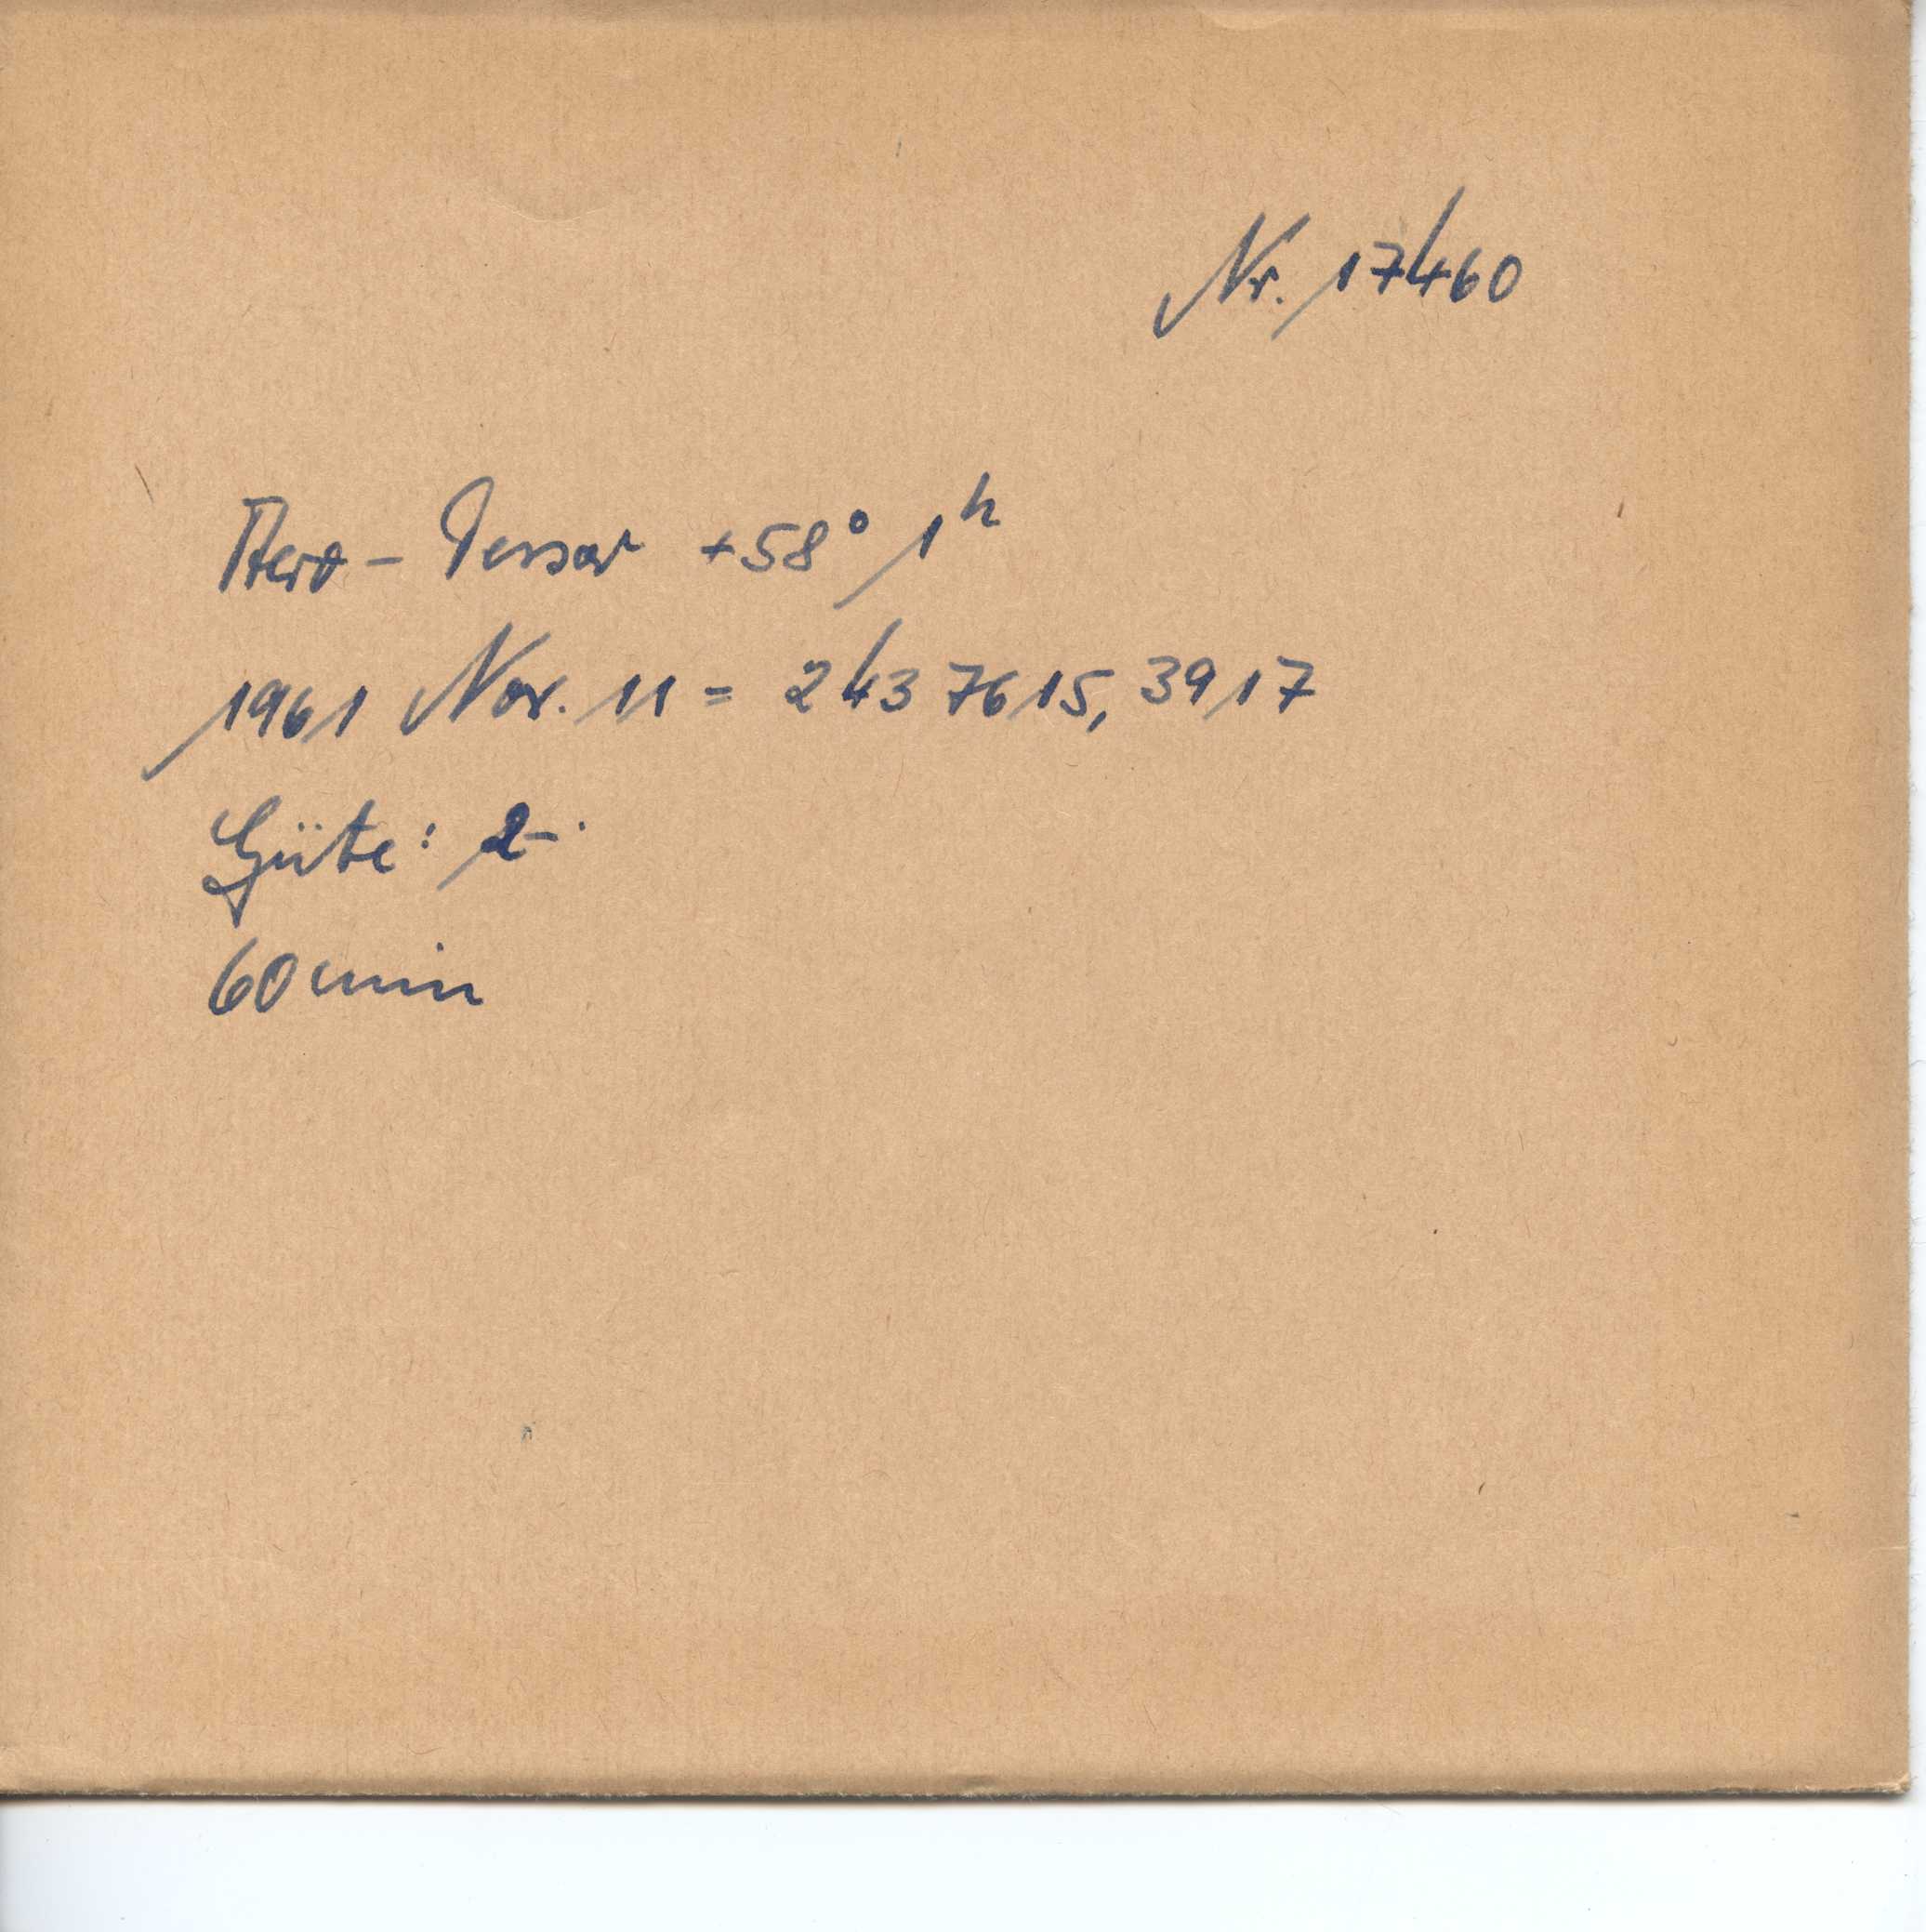 Nr. 17460
Aero - Tessar +58° 1h
1961 Nov. 11 = 243 7615, 3917
Güte: 2-
60 min